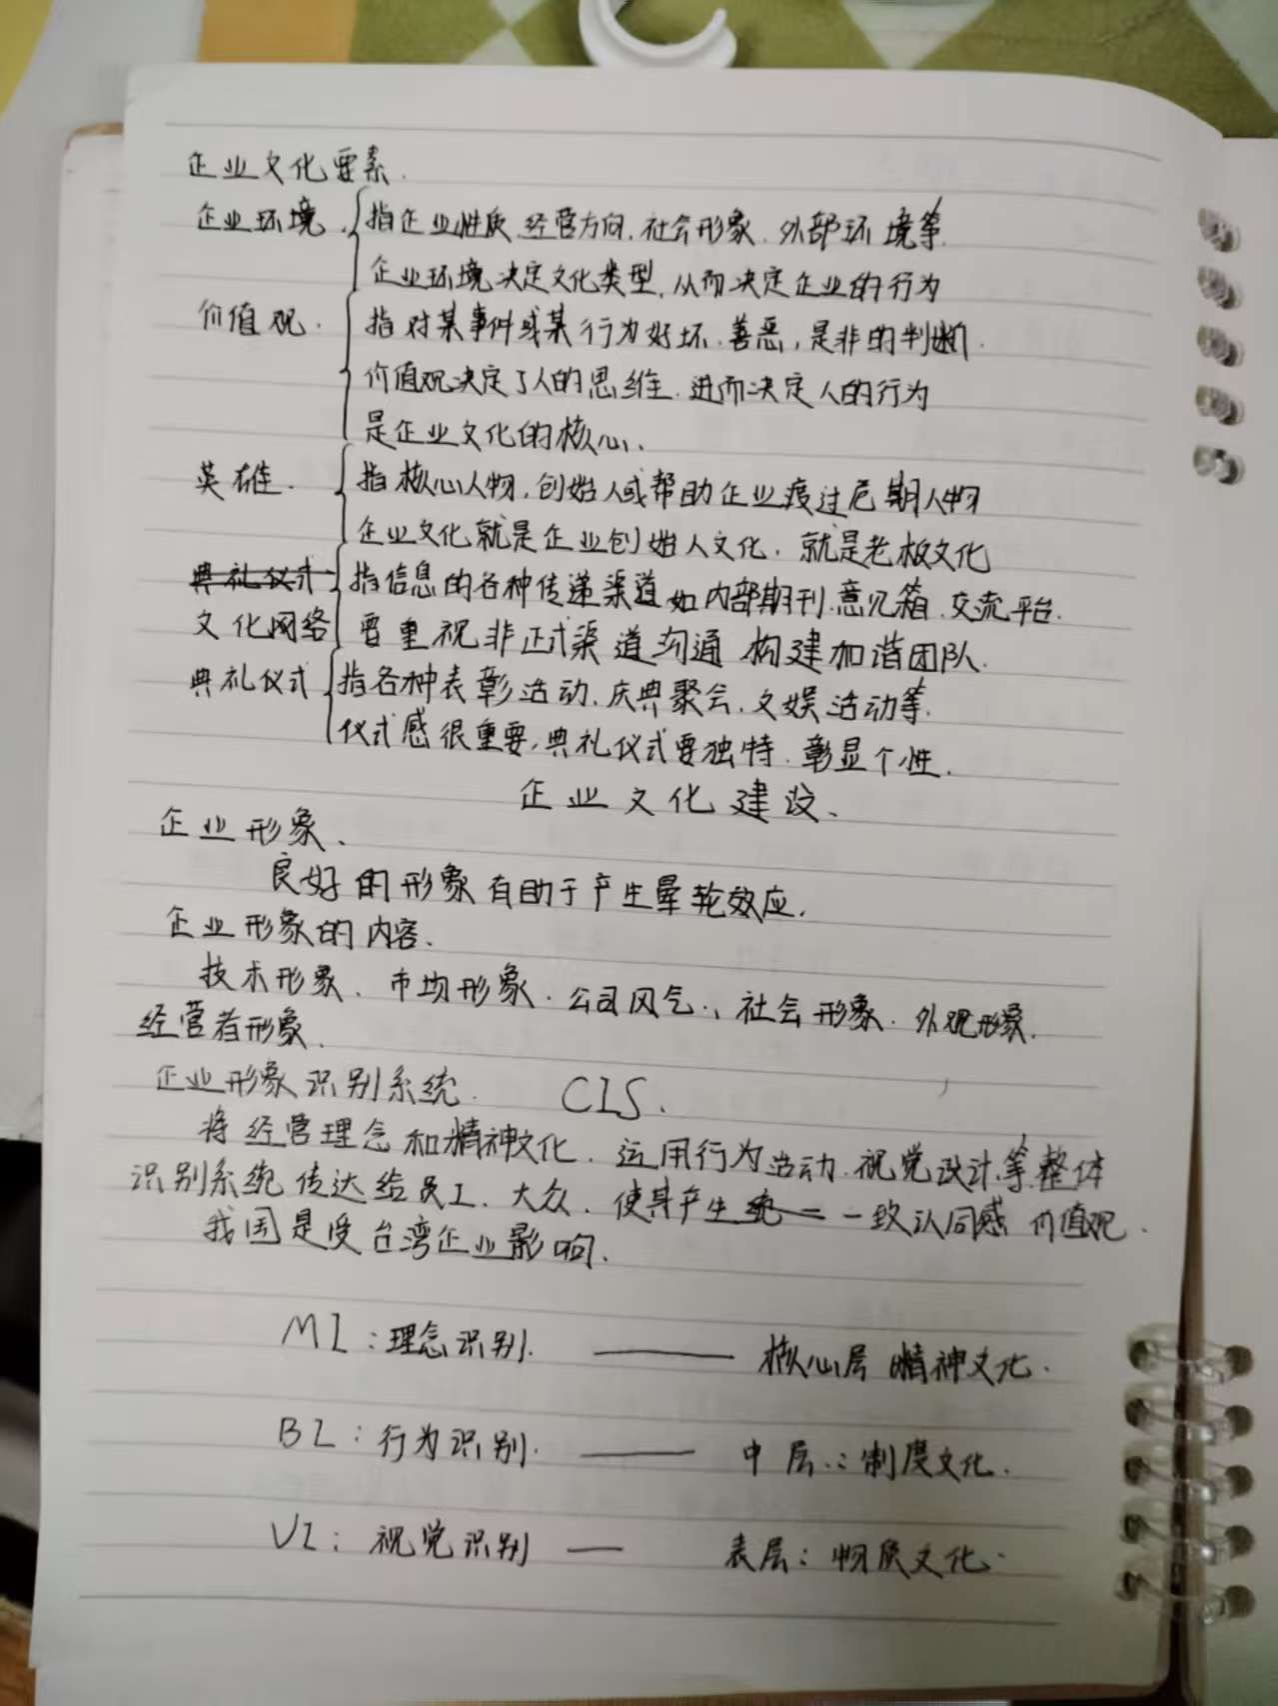 企业文化要素.
企业环境. 指企业性质.经营方向.社会形象.外部环境等.
企业环境决定文化类型.从而决定企业的行为
价值观. 指对某事件或某行为好坏.善恶,是非的判断.
价值观决定了人的思维.进而决定人的行为
是企业文化的核心.
英雄. 指核心人物,创始人或帮助企业度过危期人物
企业文化就是企业创始人文化.就是老板文化
典礼仪式 指信息的各种传递渠道如内部期刊.意见箱.交流平台.
文化网络 要重视非正式渠道沟通 构建和谐团队.
典礼仪式 指各种表彰活动.庆典聚会.文娱活动等.
仪式感很重要,典礼仪式要独特.彰显个性.
企业文化建设.
企业形象.
良好的形象有助于产生晕轮效应.
企业形象的内容.
技术形象.市场形象.公司风气.,社会形象.外观形象.
经营者形象.
企业形象识别系统. CIS.
将经营理念和精神文化.运用行为活动.视觉设计等整体
识别系统传达给员工.大众.使其产生统一 一致认同感 价值观.
我国是受台湾企业影响.
MI:理念识别. —— 核心层 精神文化.
BI:行为识别. —— 中层:制度文化.
VI:视觉识别 — 表层:物质文化.